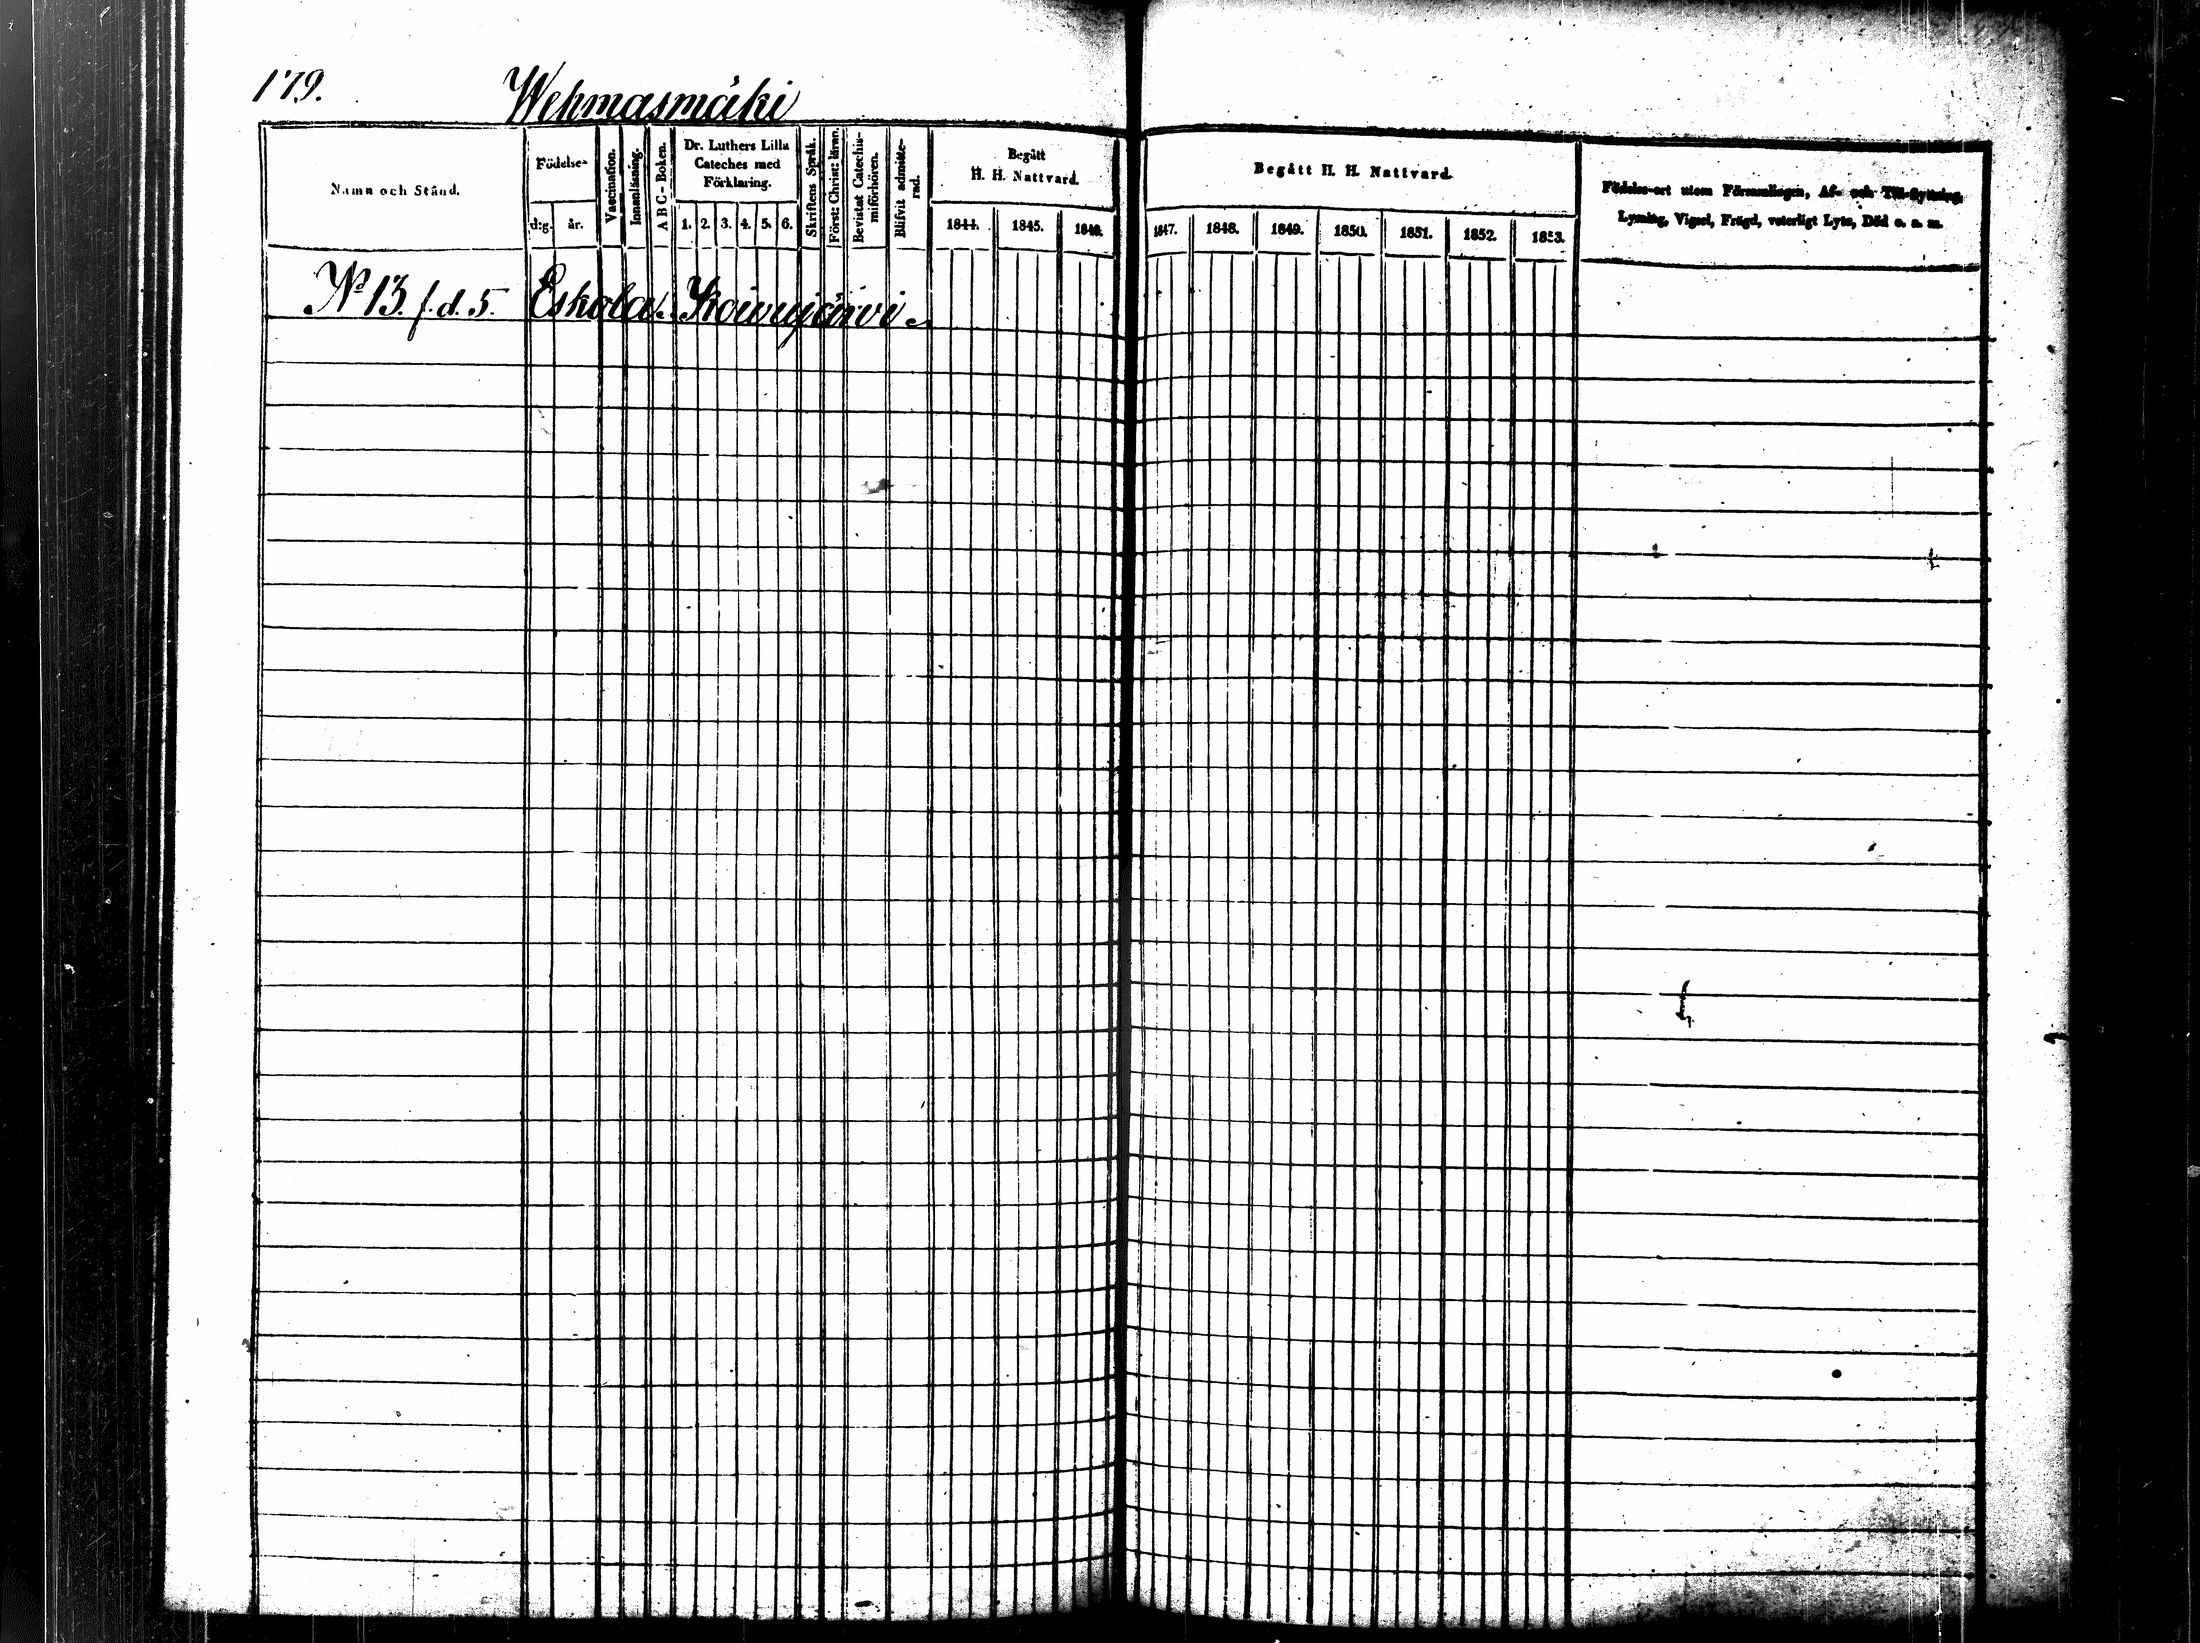 179.
Wehmasmäki
Namn och Stånd.
Födelse-
d:g.
år.
Vaccination.
Innanläsning.
A B C - Boken.
Dr. Luthers Lilla
Cateches med
Förklaring.
1. 2. 3. 4. 5. 6.
Skriftens Språk.
Först: Christ: läran.
Bevistat Catechis-
miförhören.
Blifvit admitte-
rad.
Begått
H. H. Nattvard.
1844. 1845. 1846.
Begått H. H. Nattvard.
1847. 1848. 1849. 1850. 1851. 1852. 1853.
Födelse-ort utom Församlingen, Af- och Till-flyttning,
Lysning, Vigsel, Frägd, veterligt Lyte, Död o. s. m.
No 13. f. d. 5. Eskola. Koivujärvi.